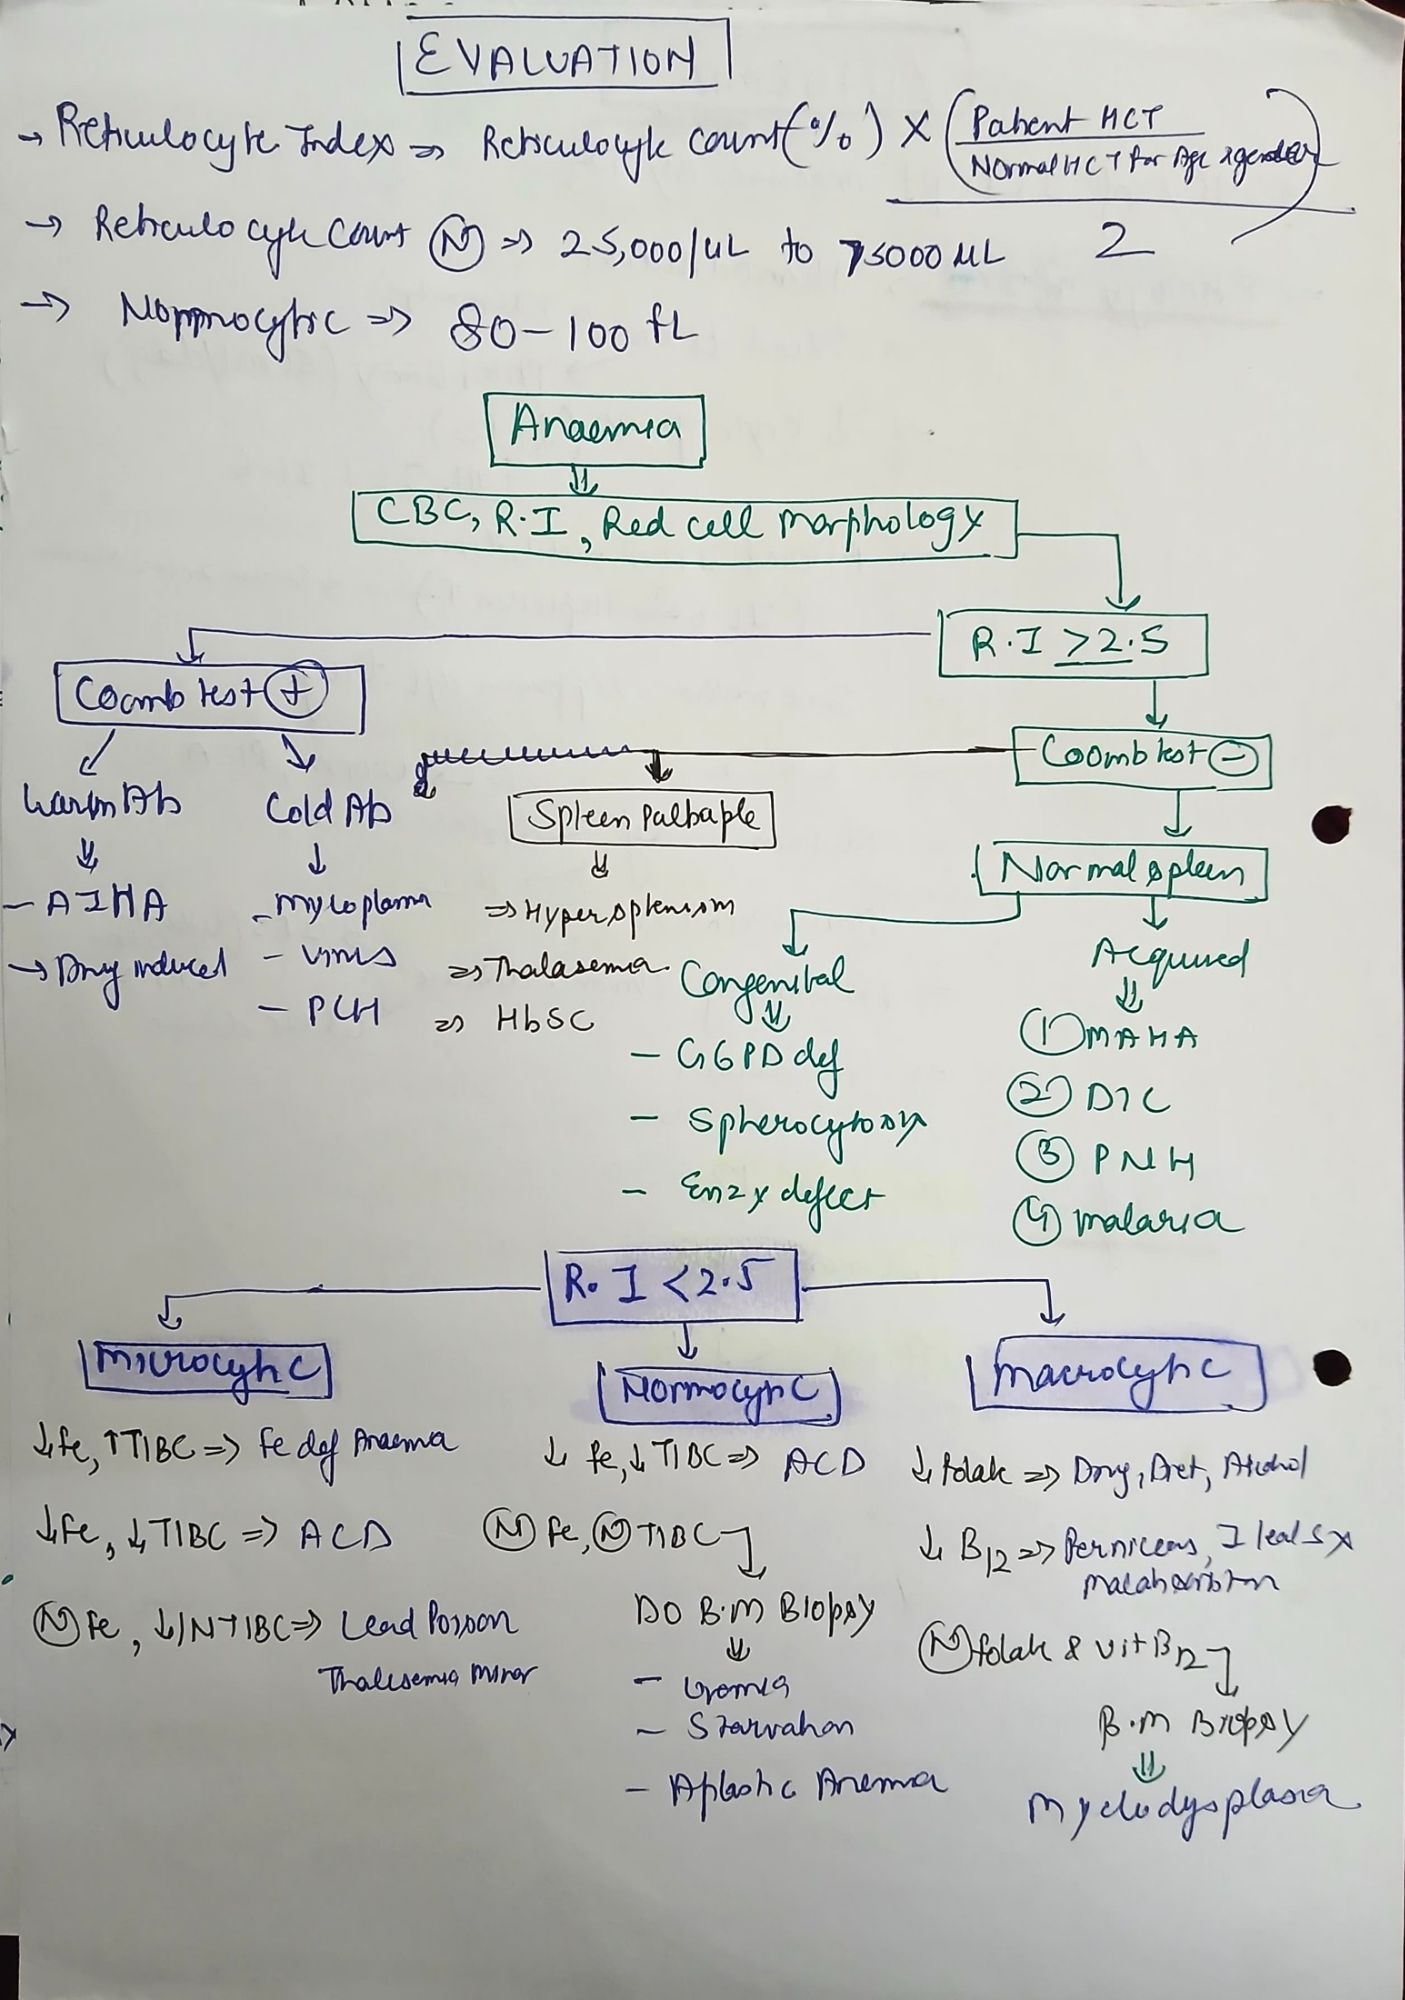 EVALUATION
→ Reticulocyte Index ⇒ Reticulocyte count (%) × (Patient HCT / Normal HCT for Age & gender) / 2
→ Reticulocyte Count Ⓝ ⇒ 25,000/uL to 75000 uL
→ Normocytic ⇒ 80-100 fL
Anaemia
CBC, R.I, Red cell morphology
R.I ≥ 2.5
Coomb test ⊕
Coomb test ⊖
Warm Ab
Cold Ab
Spleen Palbaple
Normal spleen
- AIHA
→ Drug induced
- mycoplasma
- virus
- PCH
⇒ Hypersplenism
⇒ Thalasemia
⇒ HbSC
Congenital
- G6PD def
- Spherocytosis
- Enzy defect
Acquired
① MAHA
② DIC
③ PNH
④ malaria
R.I < 2.5
Microcytic
Normocytic
Macrocytic
↓ Fe, ↑ TIBC ⇒ Fe def Anaemia
↓ Fe, ↓ TIBC ⇒ ACD
Ⓝ Fe, ↓/N TIBC ⇒ Lead Poison
Thalesemia minor
↓ Fe, ↓ TIBC ⇒ ACD
Ⓝ Fe, Ⓝ TIBC
DO B.M Biopsy
- Uremia
- Starvation
- Aplastic Anemia
↓ folate ⇒ Drug, Diet, Alcohol
↓ B12 ⇒ Perniceus, Ileal Sx
malabsorbtion
Ⓝ folate & vit B12
B.M Biopsy
Myelodysplasia